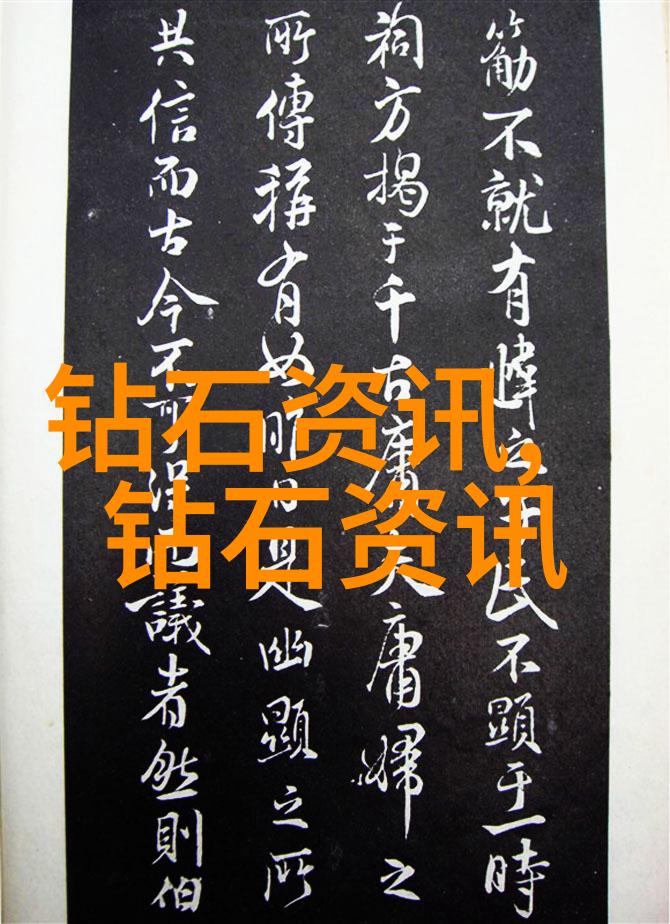 不就有之民不顯于一時
祠方揭于千古庸夫庸婦之
所傳稱有如昨日是幽顯之所
共信而古今不可議者然則伯
钻石资讯,
钻石资讯